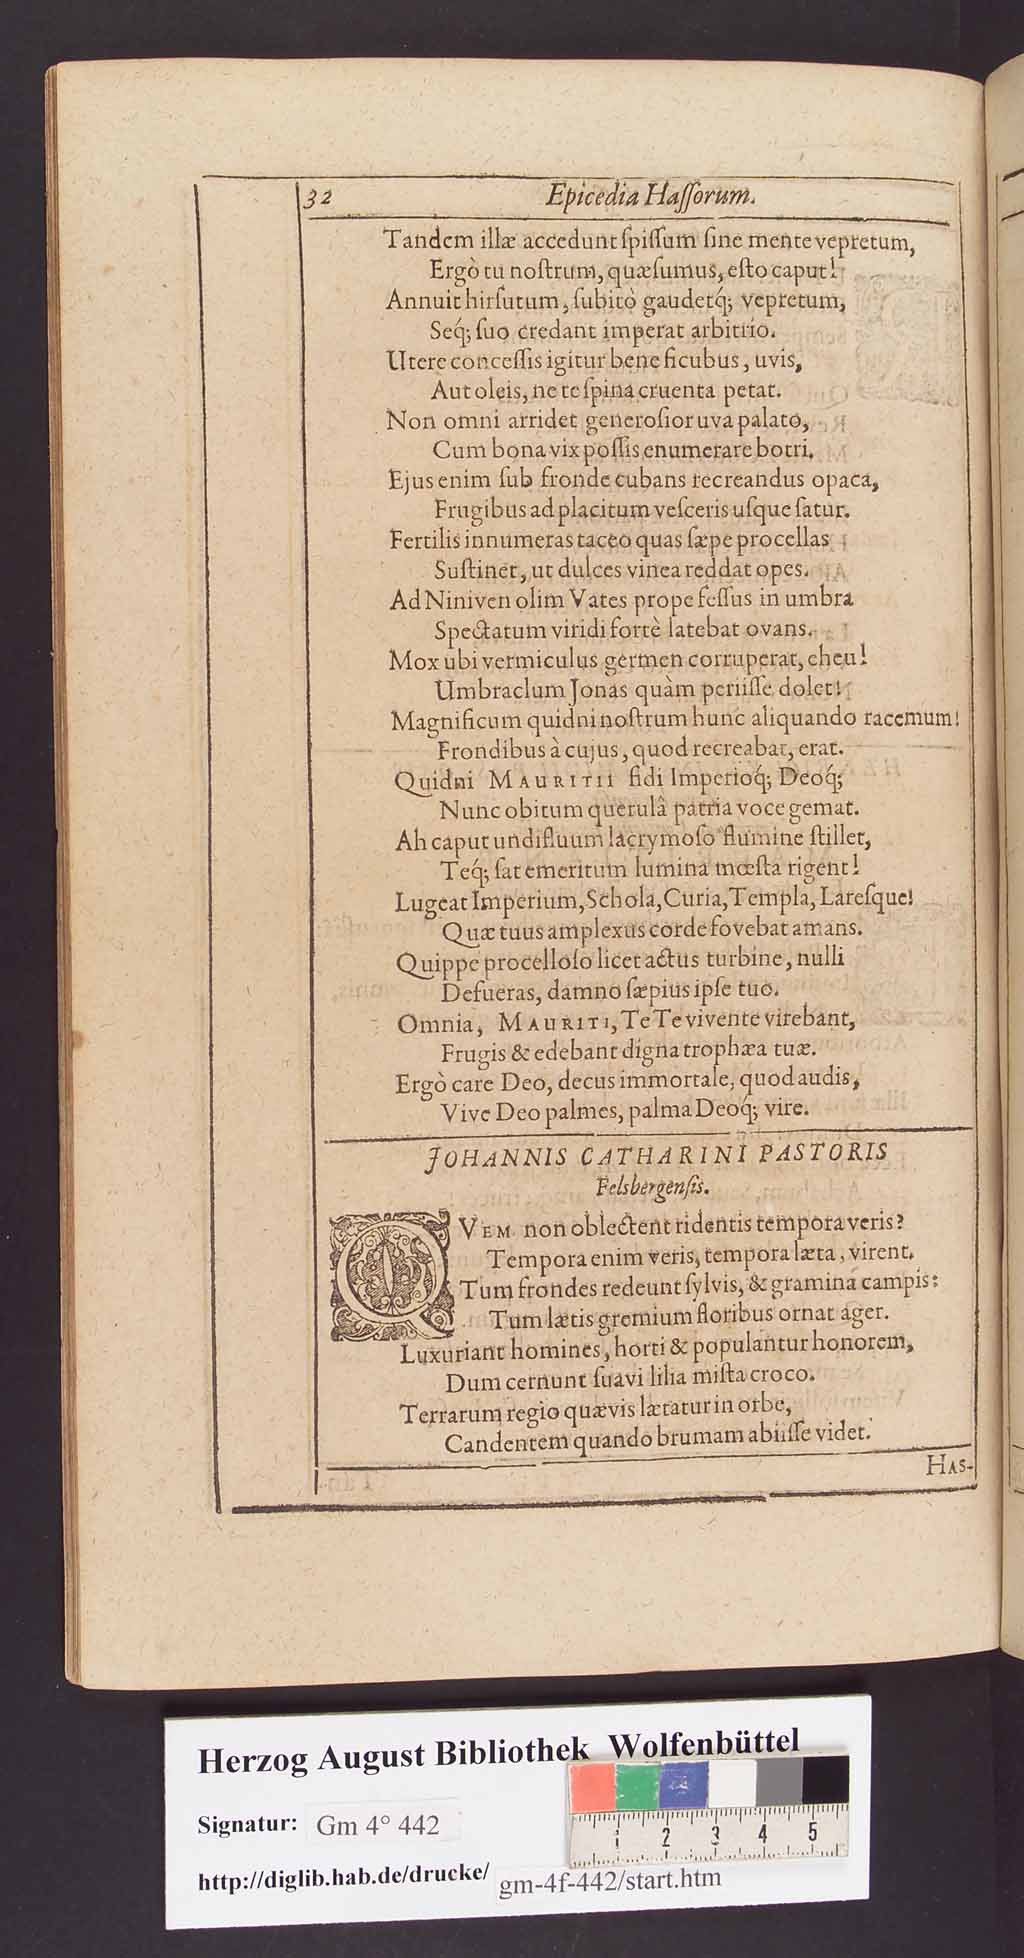 32 Epicedia Haſſorum.
Tandem illæ accedunt ſpiſſum ſine mente vepretum,
Ergò tu noſtrum, quæſumus, eſto caput!
Annuit hirſutum, ſubitò gaudetq́; vepretum,
Seq́; ſuo credant imperat arbitrio.
Utere conceſſis igitur bene ficubus, uvis,
Aut oleis, ne te ſpina cruenta petat.
Non omni arridet generoſior uva palato,
Cum bona vix poſſis enumerare botri.
Ejus enim ſub fronde cubans recreandus opaca,
Frugibus ad placitum veſceris uſque ſatur.
Fertilis innumeras taceo quas ſæpe procellas
Suſtinet, ut dulces vinea reddat opes.
Ad Niniven olim Vates prope feſſus in umbra
Spectatum viridi fortè latebat ovans.
Mox ubi vermiculus germen corruperat, eheu!
Umbraclum Jonas quàm periiſſe dolet!
Magnificum quidni noſtrum hunc aliquando racemum!
Frondibus à cujus, quod recreabat, erat.
Quidni MAURITII fidi Imperioq́; Deoq́;
Nunc obitum querulâ patria voce gemat.
Ah caput undifluum lacrymoſo flumine ſtillet,
Teq́; ſat emeritum lumina mœſta rigent!
Lugeat Imperium, Schola, Curia, Templa, Lareſque!
Quæ tuus amplexus corde fovebat amans.
Quippe procelloſo licet actus turbine, nulli
Defueras, damno ſæpius ipſe tuo.
Omnia, MAURITI, Te Te vivente virebant,
Frugis & edebant digna trophæa tuæ.
Ergò care Deo, decus immortale, quod audis,
Vive Deo palmes, palma Deoq́; vire.
JOHANNIS CATHARINI PASTORIS
Felsbergenſis.
QVEM non oblectent ridentis tempora veris?
Tempora enim veris, tempora læta, virent.
Tum frondes redeunt ſylvis, & gramina campis:
Tum lætis gremium floribus ornat ager.
Luxuriant homines, horti & populantur honorem,
Dum cernunt ſuavi lilia miſta croco.
Terrarum regio quævis lætatur in orbe,
Candentem quando brumam abiiſſe videt.
HAS-
Herzog August Bibliothek Wolfenbüttel
Signatur: Gm 4° 442
http://diglib.hab.de/drucke/ gm-4f-442/start.htm
1 2 3 4 5